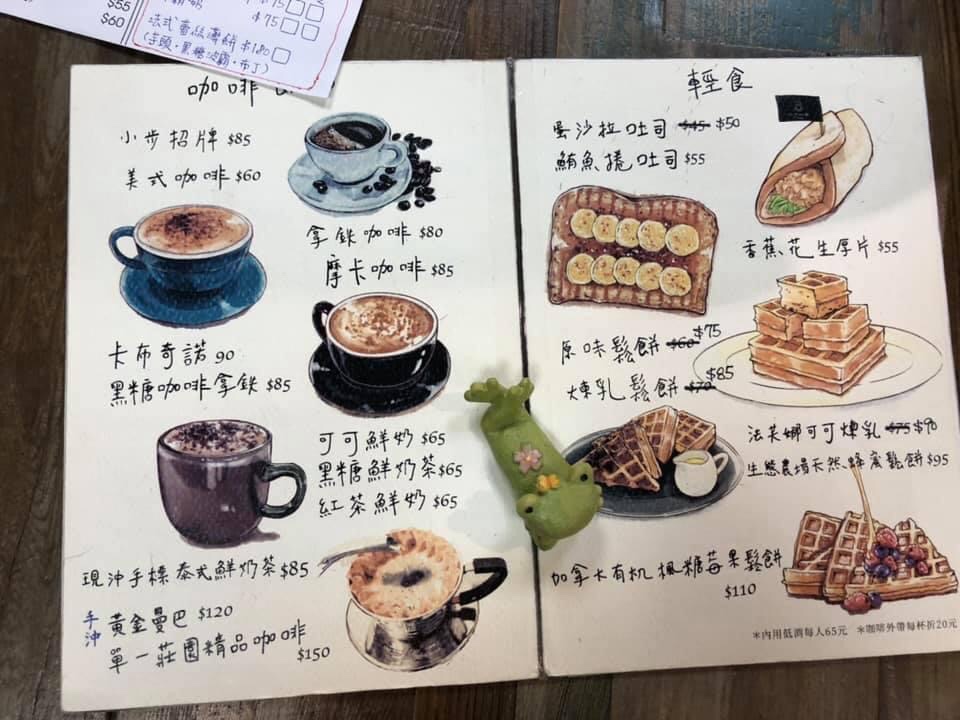 $55
$60
$75
法式蕾絲薄餅 $180
(芋頭·黑糖波霸·布丁)
咖啡
小步招牌 $85
美式咖啡 $60
拿鉄咖啡 $80
摩卡咖啡 $85
卡布奇諾 90
黑糖咖啡拿鉄 $85
可可鮮奶 $65
黑糖鮮奶茶 $65
紅茶鮮奶 $65
現沖手標泰式鮮奶茶 $85
手沖
黃金曼巴 $120
單一莊園精品咖啡 $150
輕食
蛋沙拉吐司 $45 $50
鮪魚捲吐司 $55
香蕉花生厚片 $55
原味鬆餅 $60 $75
煉乳鬆餅 $70 $85
法芙娜可可煉乳 $75 $90
生態農場天然蜂蜜鬆餅 $95
加拿大有机楓糖莓果鬆餅
$110
*內用低消每人65元 *咖啡外帶每杯折20元